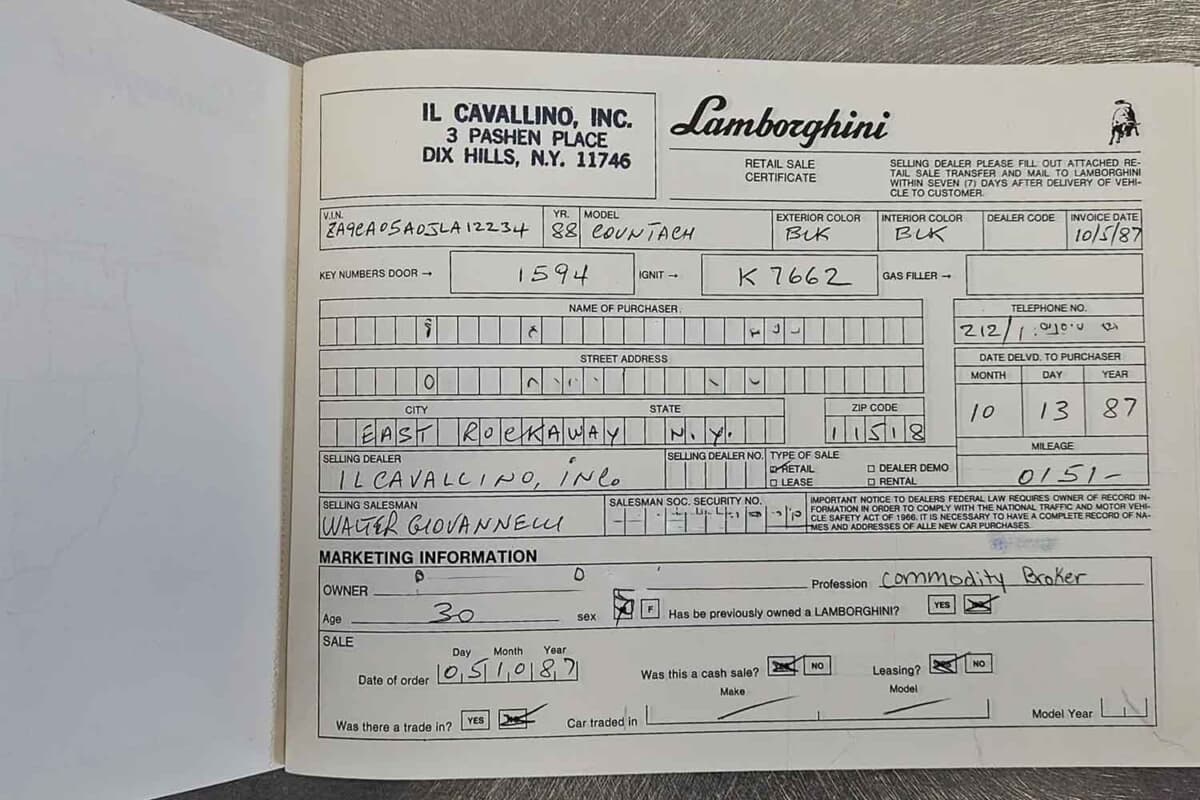 IL CAVALLINO, INC.
3 PASHEN PLACE
DIX HILLS, N.Y. 11746
Lamborghini
RETAIL SALE
CERTIFICATE
SELLING DEALER PLEASE FILL OUT ATTACHED RE-
TAIL SALE TRANSFER AND MAIL TO LAMBORGHINI
WITHIN SEVEN (7) DAYS AFTER DELIVERY OF VEHI-
CLE TO CUSTOMER.
V.I.N. YR. MODEL EXTERIOR COLOR INTERIOR COLOR DEALER CODE INVOICE DATE
ZA9CA05A0JLA12234 88 COUNTACH BLK BLK 10/5/87
KEY NUMBERS DOOR → 1594 IGNIT → K7662 GAS FILLER →
NAME OF PURCHASER TELEPHONE NO.
212/
STREET ADDRESS DATE DELVD. TO PURCHASER
MONTH DAY YEAR
10 13 87
CITY STATE ZIP CODE
EAST ROCKAWAY N.Y. 11518
MILEAGE
0151-
SELLING DEALER SELLING DEALER NO. TYPE OF SALE
IL CAVALLINO, INC. RETAIL DEALER DEMO
LEASE RENTAL
SELLING SALESMAN SALESMAN SOC. SECURITY NO.
WALTER GIOVANNELLI
IMPORTANT NOTICE TO DEALERS FEDERAL LAW REQUIRES OWNER OF RECORD IN-
FORMATION IN ORDER TO COMPLY WITH THE NATIONAL TRAFFIC AND MOTOR VEHI-
CLE SAFETY ACT OF 1966. IT IS NECESSARY TO HAVE A COMPLETE RECORD OF NA-
MES AND ADDRESSES OF ALLE NEW CAR PURCHASES.
MARKETING INFORMATION
OWNER Profession Commodity Broker
Age 30 sex F Has be previously owned a LAMBORGHINI? YES
SALE
Day Month Year
Date of order 051087 Was this a cash sale? NO Leasing? NO
Make Model
Was there a trade in? YES Car traded in Model Year